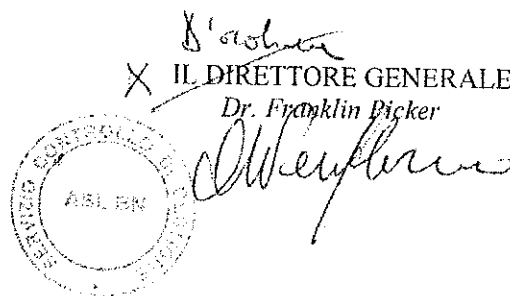 D'ordine
X IL DIRETTORE GENERALE
Dr. Franklin Picker
SERVIZIO CONTROLLO DI GESTIONE
ASL BN